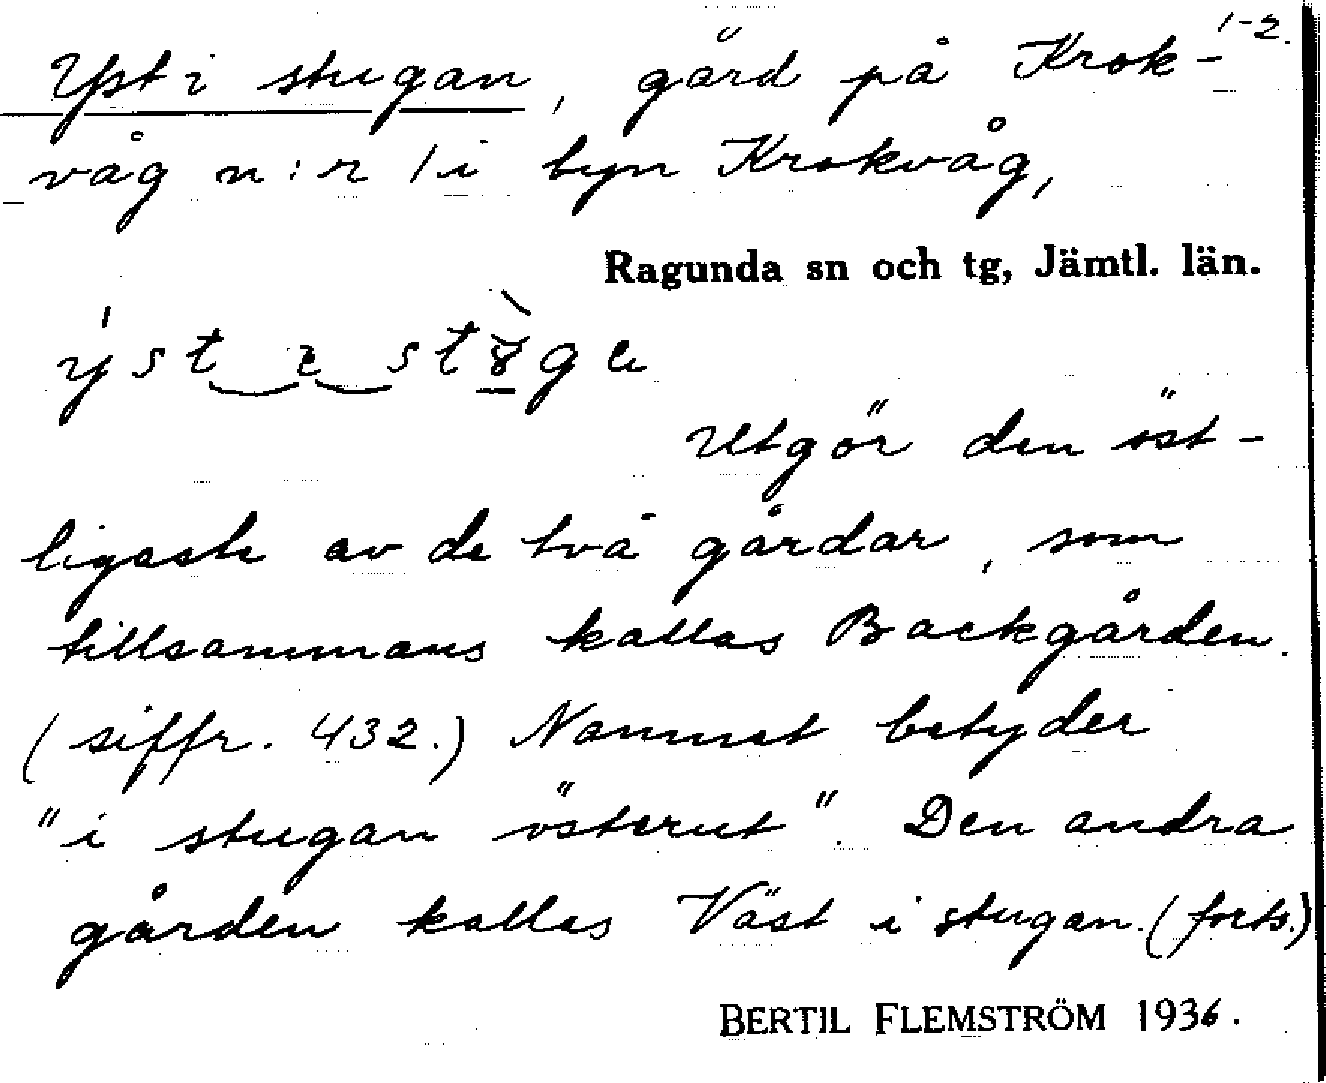 1-2.
Yst i stugan, gård på Krok-
våg n:r 1 i byn Krokvåg,
Ragunda sn och tg, Jämtl. län.
Utgör den öst-
ligaste av de två gårdar, som
tillsammans kallas Backgården.
(siffr. 432.) Namnet betyder
"i stugan österut". Den andra
gården kallas Väst i stugan. (forts.)
BERTIL FLEMSTRÖM 1936.